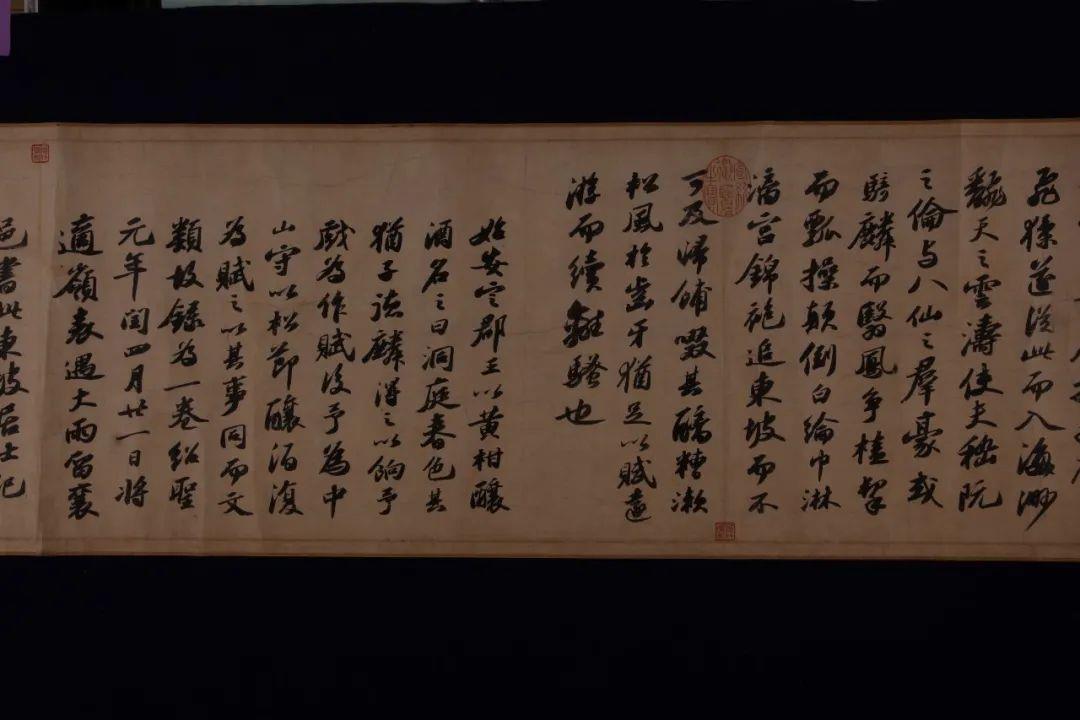 飛猱遂從此而入海渺
飜天之雲濤使夫嵇阮
之倫与八仙之羣豪或
騎麟而翳鳳爭榼挈
而瓢操顛倒白綸巾淋
漓宮錦袍追東坡而不
可及歸餔歠其醨糟漱
松風於齒牙猶足以賦遠
游而續離騷也
始安定郡王以黃柑釀
酒名之曰洞庭春色其
猶子德麟得之以餉予
戲為作賦後予為中
山守以松節釀酒復
為賦之以其事同而文
類故錄為一卷紹聖
元年閏四月廿一日將
適嶺表遇大雨留襄
邑書此東坡居士記